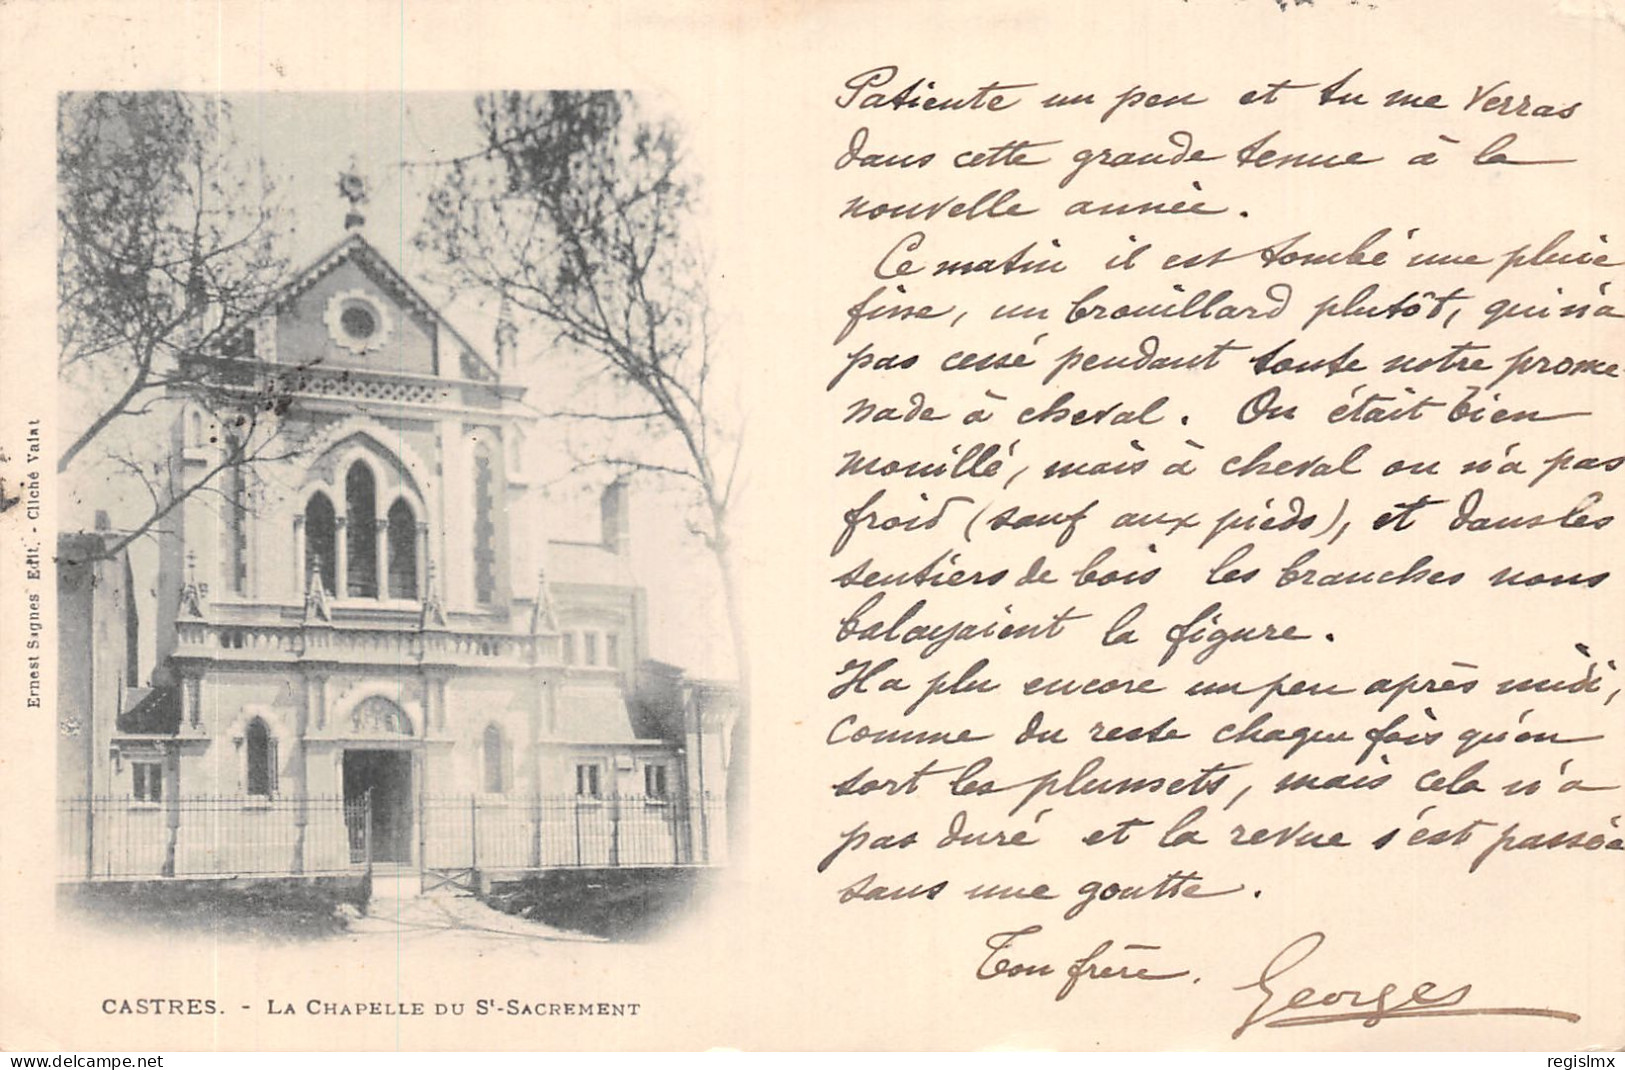 Patiente un peu et tu me verras
dans cette grande tenue à la
nouvelle année.
Ce matin il est tombé une pluie
fine, un brouillard plutôt, qui n'a
pas cessé pendant toute notre prome-
nade à cheval. On était bien
mouillé, mais à cheval on n'a pas
froid (sauf aux pieds), et dans les
sentiers de bois les branches nous
balayaient la figure.
Il a plu encore un peu après midi,
comme du reste chaque fois qu'on
sort les plumets, mais cela n'a
pas duré et la revue s'est passée
sans une goutte.
Ton frère.
Georges
Ernest Sagnes Edit. - Cliché Valat
CASTRES. - LA CHAPELLE DU St-SACREMENT
delcampe.net
regislmx